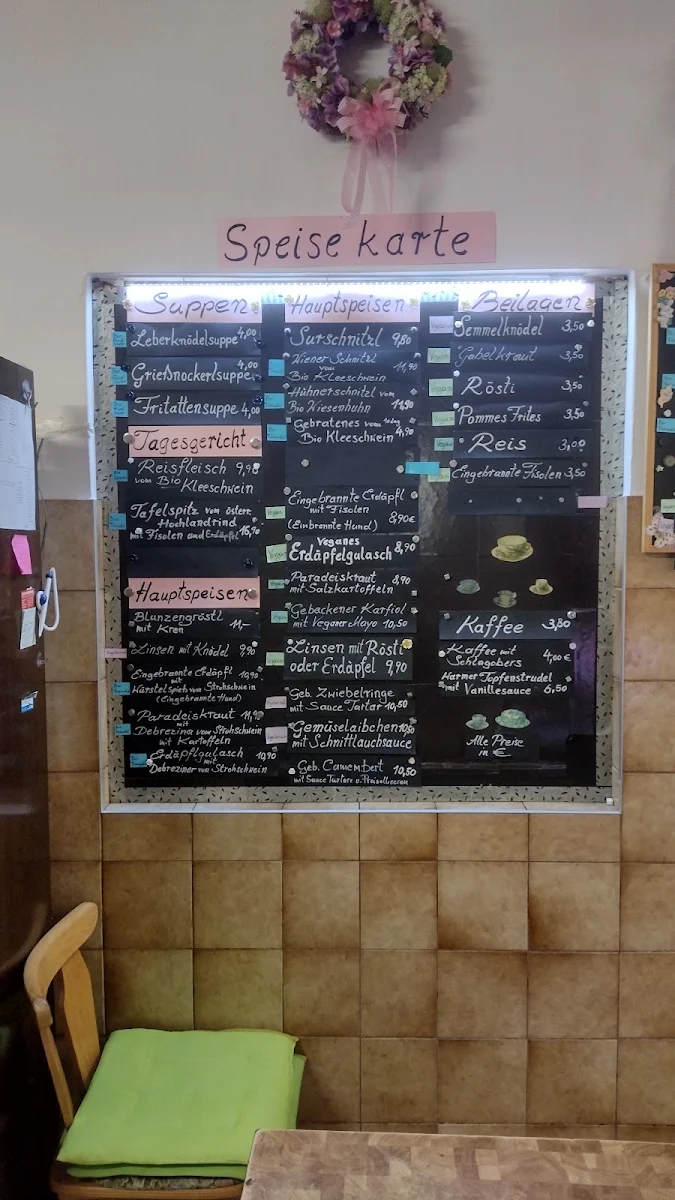 Speisekarte
Suppen
Leberknödelsuppe 4,00
Grießnockerlsuppe 4,00
Fritattensuppe 4,00
Tagesgericht
Reisfleisch 9,90
vom Bio
Kleeschwein
Tafelspitz vom österr.
Hochlandrind
mit Fisolen und Erdäpfel
Hauptspeisen
Blunzengröstl 11,-
mit Kren
Linsen mit Knödel 9,90
Eingebrannte Erdäpfl 10,90
mit
Würstelspieß vom Strohschwein
(Eingebrannte Hund)
Paradeiskraut 11,90
mit
Debrezina vom Strohschwein
mit Kartoffeln
Erdäpflgulasch 10,90
mit
Debreziner vom Strohschwein
Hauptspeisen
Surschnitzl 9,80
Wiener Schnitzl
vom 11,90
Bio Kleeschwein
Hühnerschnitzl vom
Bio Wiesenhuhn 11,90
Gebratenes vom
Bio Kleeschwein
Eingebrannte Erdäpfl
mit Fisolen
(Einbrannte Hund) 8,90€
Veganes
Erdäpfelgulasch 8,90
Paradeiskraut 8,90
mit Salzkartoffeln
Gebackener Karfiol
mit Veganer Mayo 10,50
Linsen mit Rösti
oder Erdäpfel 9,90
Geb. Zwiebelringe
mit Sauce Tartar 10,50
Gemüselaibchen 10,50
mit Schnittlauchsauce
Geb. Camembert 10,50
mit Sauce Tartare u. Preiselbeeren
Beilagen
Semmelknödel 3,50
Gabelkraut 3,50
Rösti 3,50
Pommes Frites 3,50
Reis 3,00
Eingebrannte Fisolen 3,50
Kaffee 3,80
Kaffee mit
Schlagobers 4,00€
Warmer Topfenstrudel
mit Vanillesauce 6,50
Alle Preise
in €